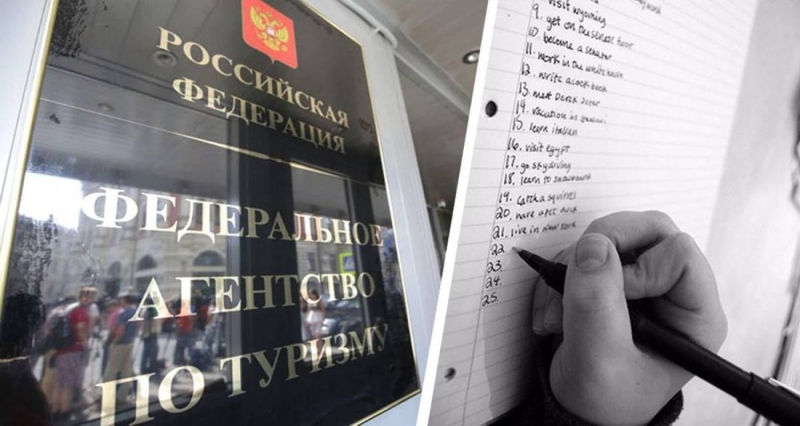 РОССИЙСКАЯ
ФЕДЕРАЦИЯ
ФЕДЕРАЛЬНОЕ
АГЕНТСТВО
ПО ТУРИЗМУ
9. visit wyoming
10. get on the senate floor
10. become a senator
11. work in the white house
12. write a cook book
13. meet Derek Jeter
14. vacation in
15. learn italian
16. visit egypt
17. go skydiving
18. learn to snowboard
19. catch a squirrel
20. have a pet
21. live in new york
22
23.
24.
25.